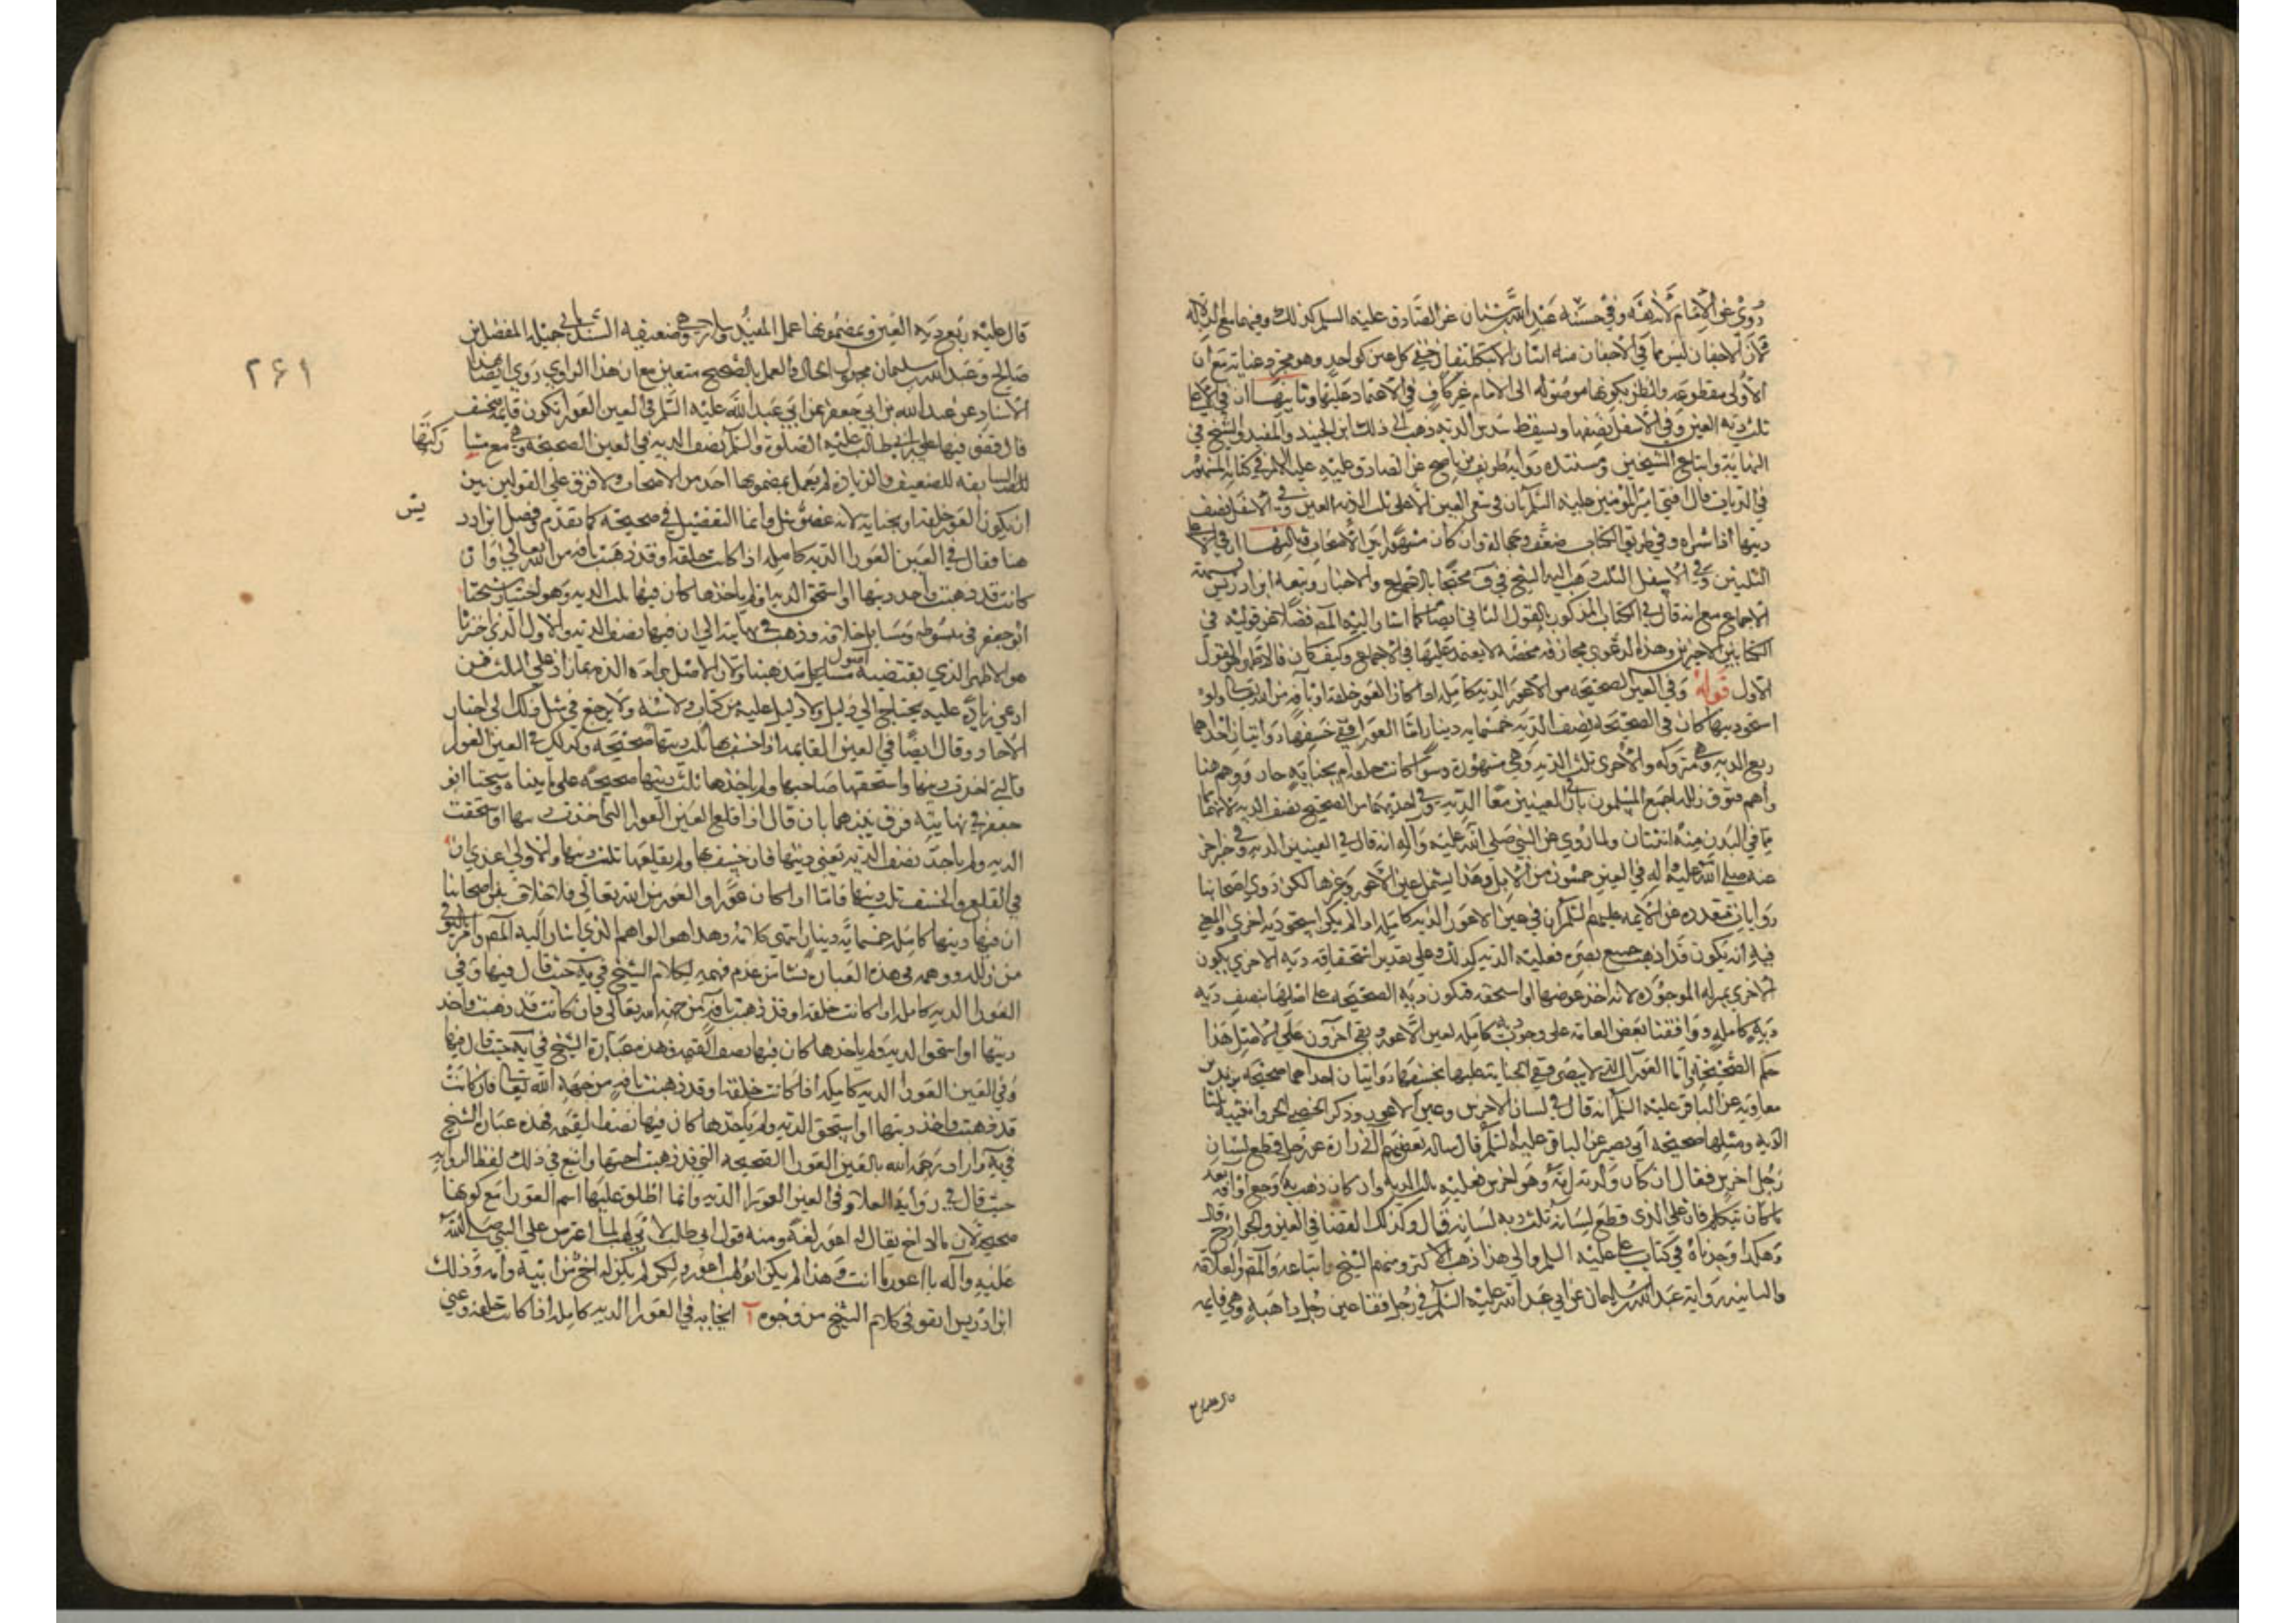 روي عن الامام لانه ثقة وفي حسنة عبد الله بن سنان عن الصادق عليه السلم كذلك وفيهما
لان الاجفان ليس مما في الانسان منه اثنان الا بتكلف اذ جفني كل عين كواحد وهو مجرد عناية مع ان
الاولى مقطوعه والظن بكونها موصوله الى الامام غير كاف في الاعتماد عليها وثانيها ان في الاعلى
ثلث دية العين وفي الاسفل نصفها ويسقط سدس الدية ذهب الى ذلك ابن الجنيد والمفيد والشيخ في
النهاية واتباع الشيخين ومستنده رواية ظريف بن ناصح عن الصادق عليه السلم في كتابه المشهور
في الديات قال افتى امير المومنين عليه السلم ان في شفر العين الاعلى ثلث الدية العين وفي الاسفل نصف
ديتها وفي طريق الكتاب ضعف وجهالة وان كان مشهورا بين الاصحاب ثالثها ان في الاعلى
الثلثين وفي الاسفل الثلث ذهب اليه الشيخ في ف محتجا بالاجماع والاخبار وتبعه ابن ادريس
الاجماع مع انه قال في الكتاب المذكور بالقول الثاني ايضا كما اشار اليه المص فضلا عن قوليه في
الكتابين الاخيرين وهذه الدعوى مجازفة محضة لا يعتمد عليها في الاجماع وكيف كان فالاظهر القول
الاول قوله وفي العين الصحيحه من الاعور الدية كاملة اذا كان العور خلقة او بآفة من الله تعالى ولو
استحق ديتها كان في الصحيحة نصف الدية خمسمايه دينار اما العوراء ففي خسفها روايتان احداهما
ربع الدية وهي متروكة والاخرى ثلث الدية وهي مشهورة وسوا كانت خلقة ام بجناية جان ووهم هنا
واهم فتوق زلله اجمع المسلمون بان في العينين معا الدية وفي احديهما من الصحيح نصف الدية لانهما
مما في البدن منه اثنتان ولما روي عن النبي صلى الله عليه واله انه قال في العينين الدية وفي خبر اخر
عنه صلى الله عليه واله في العين خمسون من الابل وهذا يشمل عين الاعور وغيرها لكن روى اصحابنا
روايات متعدده عن الائمه عليهم السلم ان في عين الاعور الدية كاملة اذا لم يكن استحق دية اخرى والمعنى
فيه انه يكون قد اذهب جميع بصره فعليه الدية كذلك وعلى تقدير استحقاقه دية الاخرى يكون
الاخرى بمنزلة الموجودة لانه اخذ عوضها او استحقه فتكون دية الصحيحة على اصلها نصف دية
دية كاملة ووافقنا بعض العامة على وجوب دية كاملة لعين الاعور وبقي اخرون على الاصل هذا
حكم الصحيحة واما العوراء التي لا يبصر ففي الجناية عليها بخسفها روايتان احداهما صحيحة بريد بن
معاوية عن الباقر عليه السلم انه قال في لسان الاخرس وعين الاعمى وذكر الخصي الحر وانثييه ثلث
الدية ومثلها صحيحة ابي بصير عن الباقر عليه السلم قال ساله بعض آل زرارة عن رجل قطع لسان
رجل اخرس فقال ان كان ولدته امه وهو اخرس فعليه ثلث الدية وان كان ذهب به وجع او آفة بعد
ما كان يتكلم فان على الذي قطع لسانه ثلث دية لسانه قال وكذلك القضا في العين والجوارح قال
وهكذا وجدناه في كتاب علي عليه السلم والى هذا ذهب الاكثر ومنهم الشيخ واتباعه والمص والعلامة
والثانية رواية عبد الله بن سليمان عن ابي عبد الله عليه السلم في رجل فقا عين رجل ذاهبة وهي قايمه
٢٦١
قال عليه ربع دية العين وبمضمونها عمل المفيد وسلار وهي ضعيفة السند بابي جميلة المفضل بن
صالح وعبد الله بن سليمان مجهول الحال والعمل بالصحيح متعين مع ان هذا الراوي روى ايضا بهذا
الاسناد عن عبد الله بن ابي جعفر عن ابي عبد الله عليه السلم في العين العورا تكون قايمة فتخسف
قال قضى فيها علي بن ابي طالب عليه الصلوة والسلم نصف الدية في العين الصحيحة وهي مع مشا ركتها
للسابقة للضعيف والزيادة لم يعمل بمضمونها احد من الاصحاب ولا فرق على القولين بين
ان يكون العور خلقة او بجناية لانه عضو شل وانما التفصيل في صحيحة كما تقدم وفصل ابن ادر يس
هنا فقال في العين العورا الدية كاملة اذا كانت خلقة او قد ذهبت بآفة من الله تعالى وان
كانت قد ذهبت واخذ ديتها او استحق الدية وان لم ياخذها كان فيها ثلث الدية وهو اختيار شيخنا
ابو جعفر في مبسوطه ومسايل خلافه وذهب في نهايته الى ان فيها نصف الدية والاول الذي اخترناه
هو الاظهر الذي يقتضيه اصول مذهبنا ولان الاصل براءة الذمة مما زاد على الثلث فمن
ادعى زيادة عليه يحتاج الى دليل ولا دليل عليه من كتاب ولا سنة ولا يرجع في مثل ذلك الى اخبار
الآحاد وقال ايضا في العين القايمة اذا خسفها ثلث ديتها صحيحة وكذلك في العين العورا
التي اخذت ديتها او استحقها صاحبها ولم ياخذها ثلث ديتها صحيحة على ما بيناه وشيخنا ابو
جعفر في نهايته فرق بينهما بان قال اذا قلع العين العورا التي اخذت ديتها او استحقت
الدية ولم ياخذ نصف الدية يعني ديتها فان خسف بها ولم يقلعها ثلث ديتها والاولى عندي ان
في القلع والخسف ثلث ديتها فاما اذا كان عورا والعور من الله تعالى فلا خلاف بين اصحابنا
ان فيها ديتها كاملة خمسمايه دينار انتهى كلامه وهذا هو الواهم الذي اشار اليه المص وامر بالتوقي
من زلله ووهمه في هذه العبارة نشا من عدم فهمه لكلام الشيخ في ية حيث قال فيها وفي
العورا الدية كاملة اذا كانت خلقة او قد ذهبت بآفة من جهة الله تعالى فان كانت قد ذهبت واخذ
ديتها او استحق الدية ولم ياخذها كان فيها نصف القيمة وهذه عبارة الشيخ في ية حيث قال فيها
وفي العين العورا الدية كاملة اذا كانت خلقة او قد ذهبت بآفة من جهة الله تعالى فان كانت
قد ذهبت واخذ ديتها او استحق الدية ولم ياخذها كان فيها نصف القيمة فهذه عبارة الشيخ
في ية واراد رحمه الله بالعين العورا الصحيحة التي قد ذهبت اختها واتبع في ذلك لفظ الرواية
حيث قال في رواية العلا وفي العين العورا الدية وانما اطلق عليها اسم العورا مع كونها
صحيحة لان ما لا اخ له يقال له اعور لغة ومنه قول ابي طالب لابي لهب لما اعترض على النبي صلى الله
عليه واله يا اعور ما انت وهذا لم يكن ابو لهب اعور ولكن لم يكن له اخ من ابيه وامه وذلك
ابن ادريس اتقو في كلام الشيخ من وجوه آ ايجابه في العورا الدية كاملة اذا كانت خلقة وعني